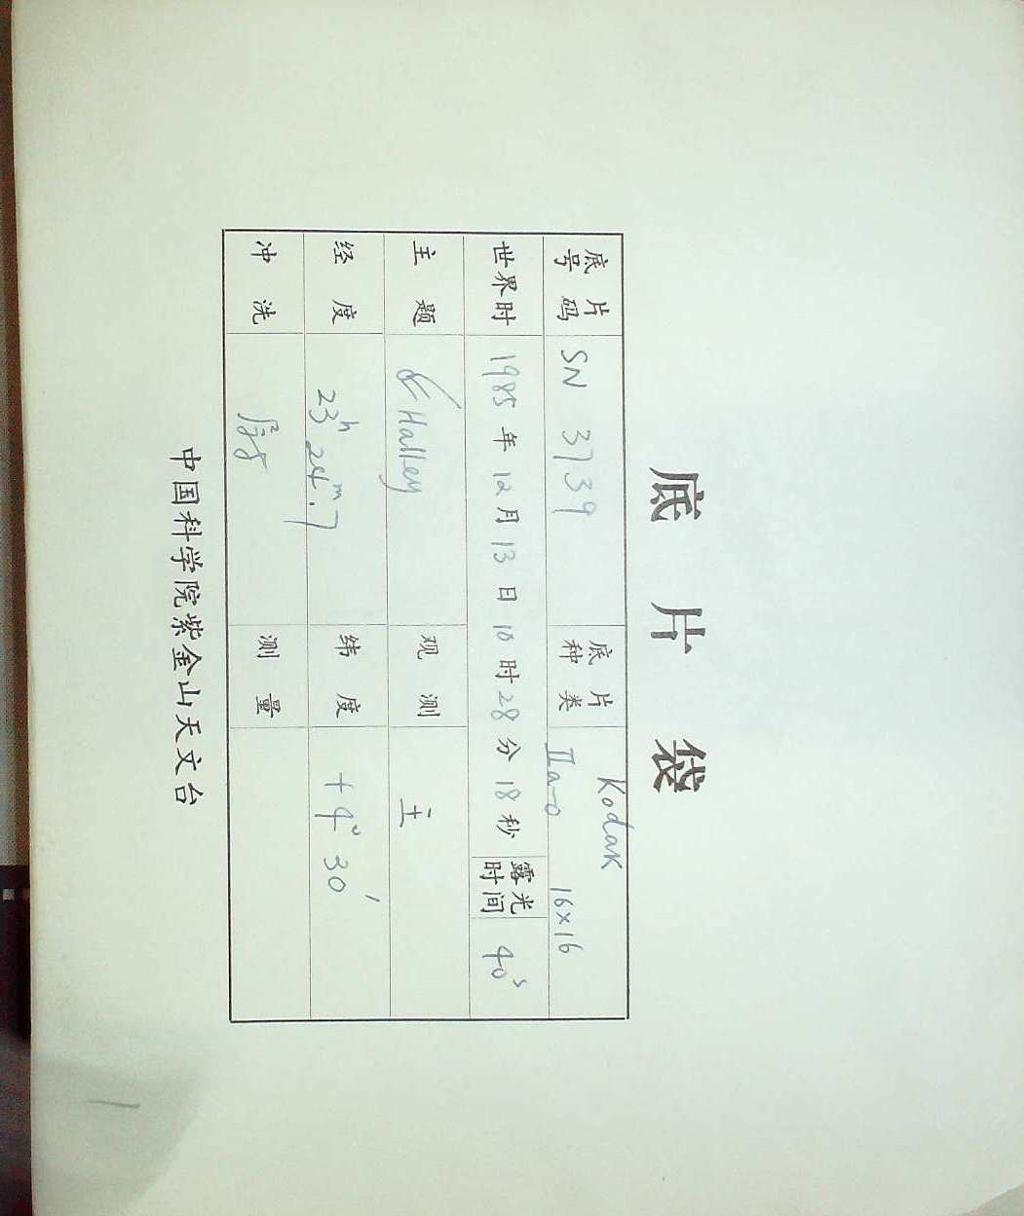 底片袋
底片号码 SN 3739 底片种类 Kodak IIa-O 16×16
世界时 1985年12月13日10时28分18秒 露光时间 40s
主题 Halley 观测
经度 23h 24m.7 纬度 +9° 30′
冲洗 测量
中国科学院紫金山天文台